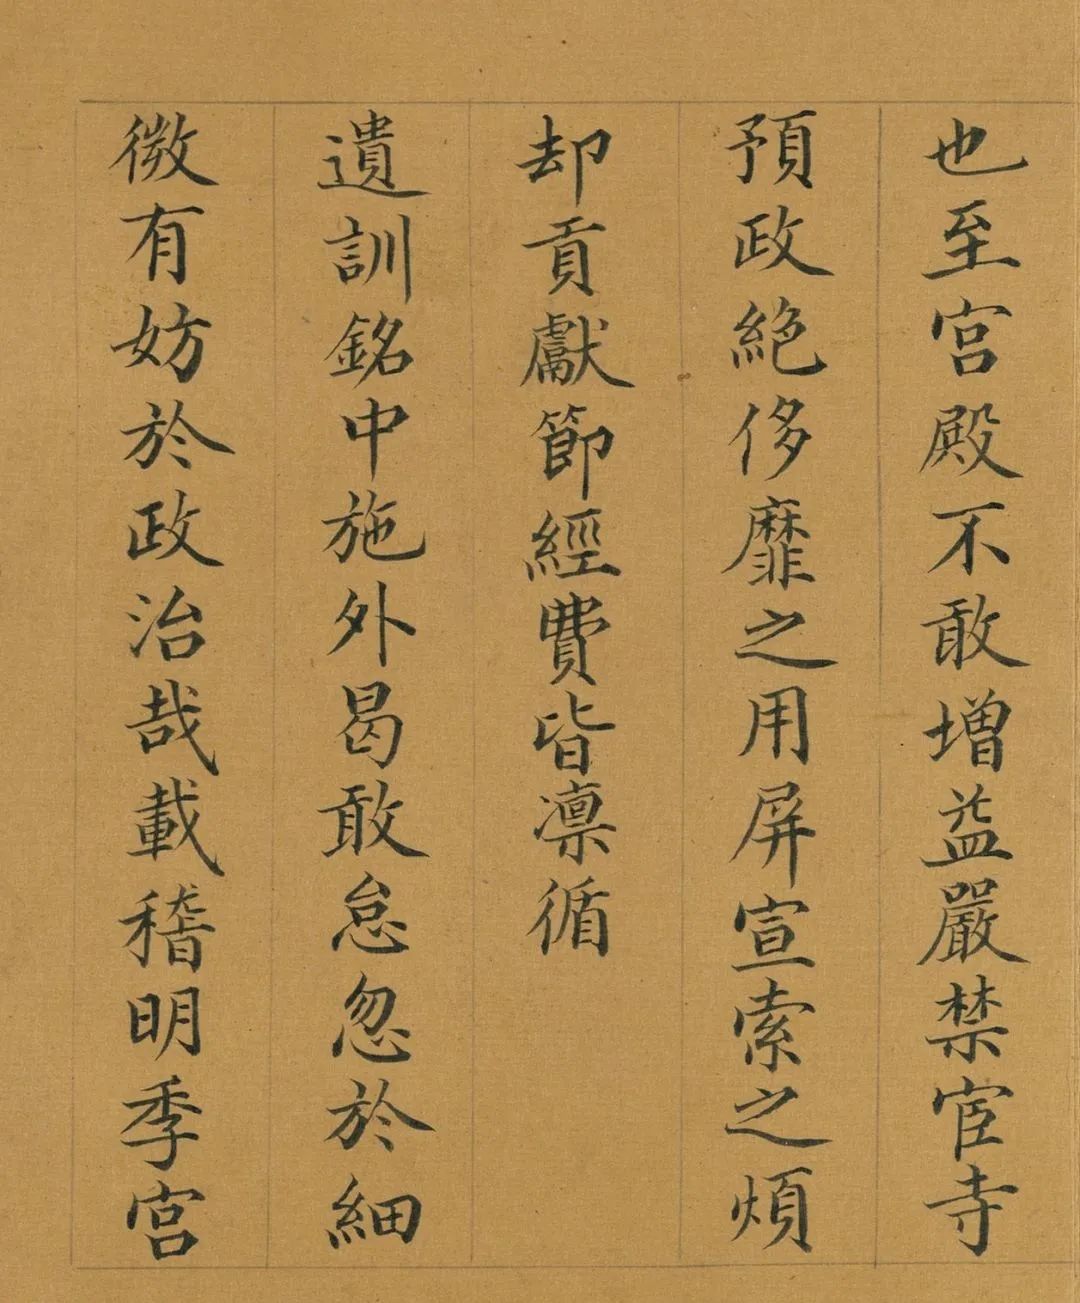 也至宮殿不敢增益嚴禁宦寺
預政絕侈靡之用屏宣索之煩
却貢獻節經費皆凛循
遺訓銘中施外曷敢怠忽於細
微有妨於政治哉載稽明季宮